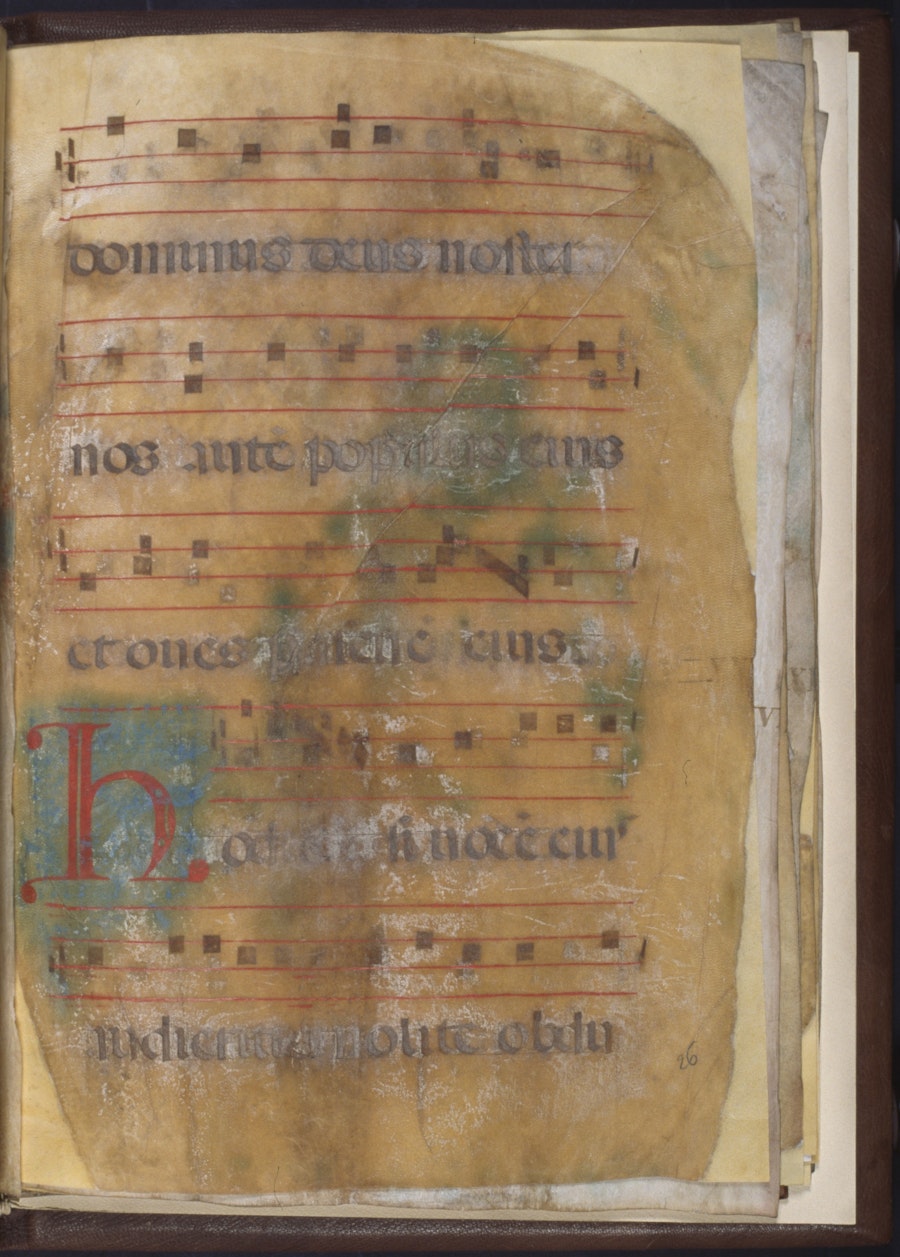 dominus deus noster
nos aute popułus eius
et oues pascue eius
Hodie si uocē eiu
audieritis nolite obdu
26